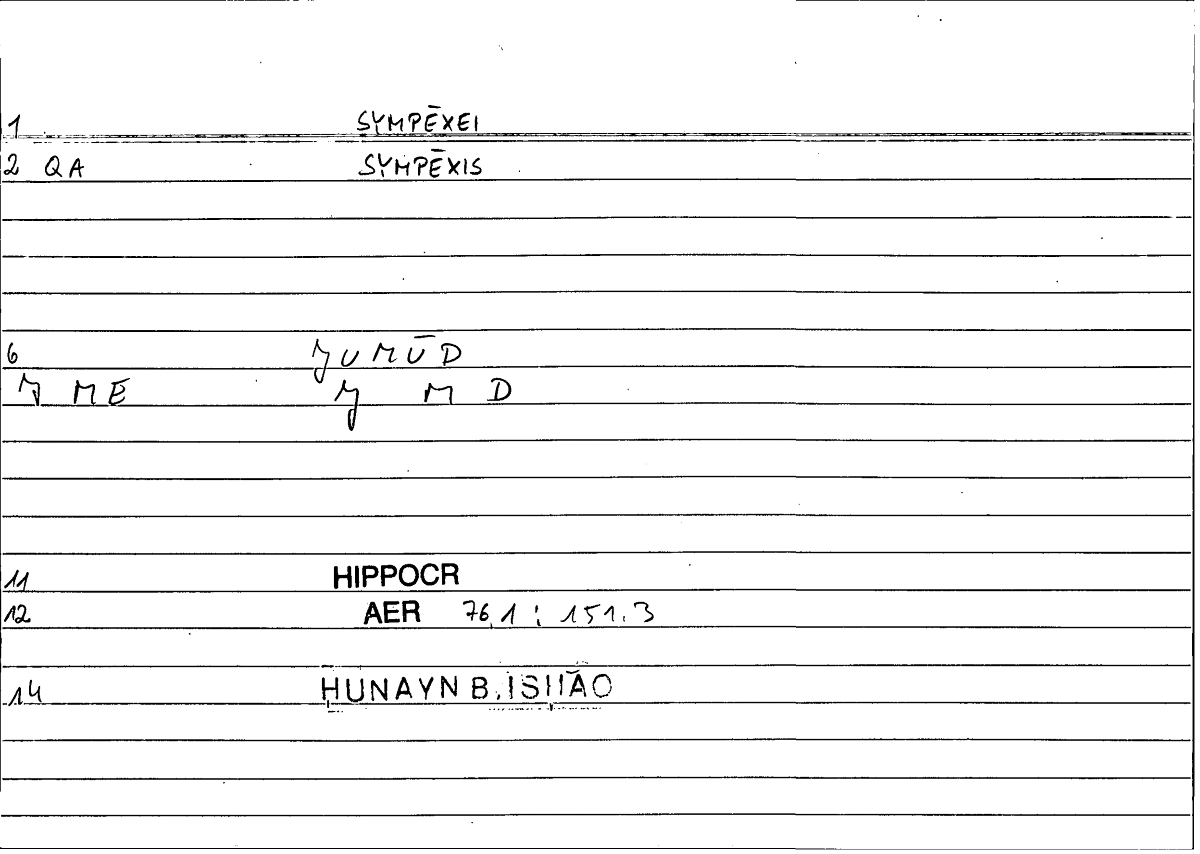 1 SYMPĒXEI
2 QA SYMPĒXIS
6 ȷUMŪD
ȷ ME ȷ M D
11 HIPPOCR
12 AER 76,1 : 151.3
14 HUNAYN B. ISHĀQ